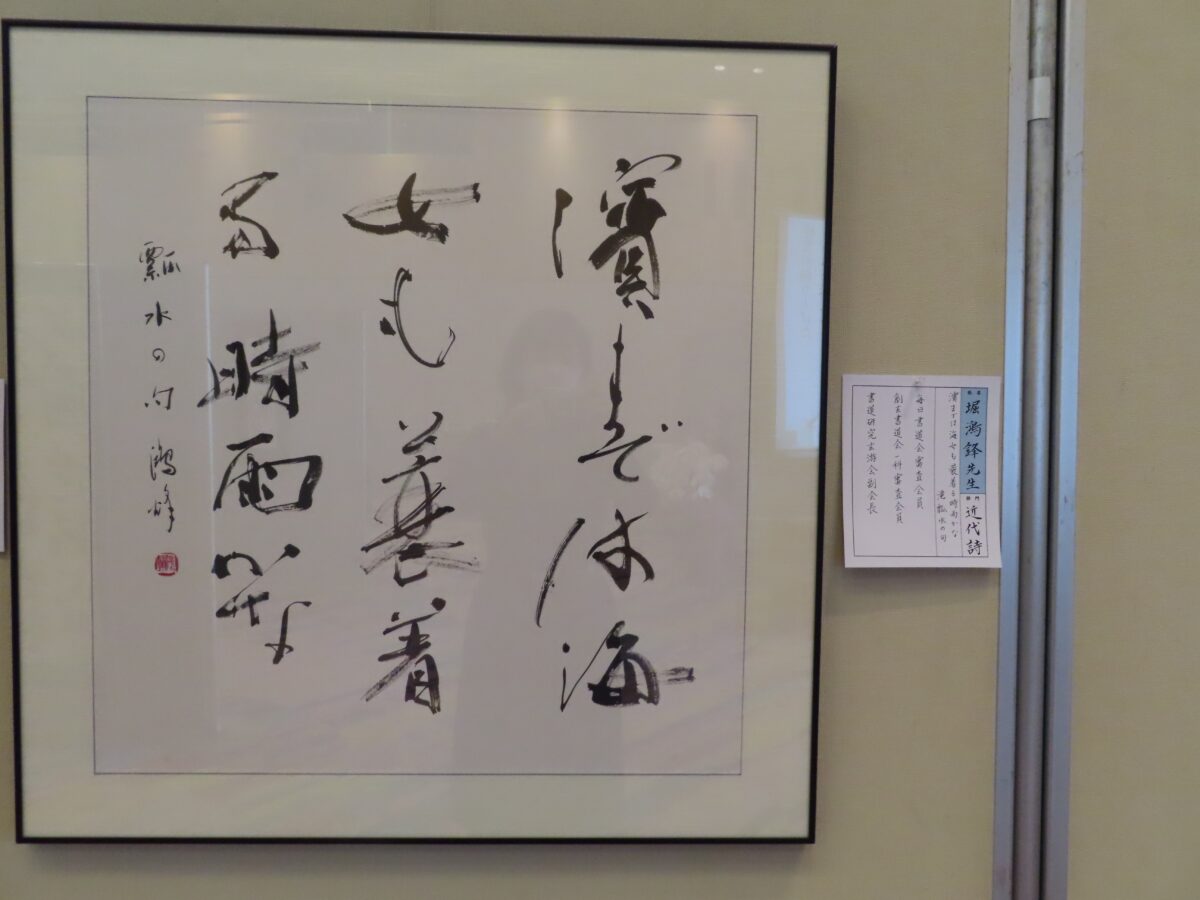 濱までは海
女も蓑着
る時雨かな
瓢水の句 鴻峰
堀 鴻峰先生
部門 近代詩
濱までは海女も蓑着る時雨かな
滝瓢水の句
毎日書道会審査会員
創玄書道会一科審査会員
書道研究玄游会副会長